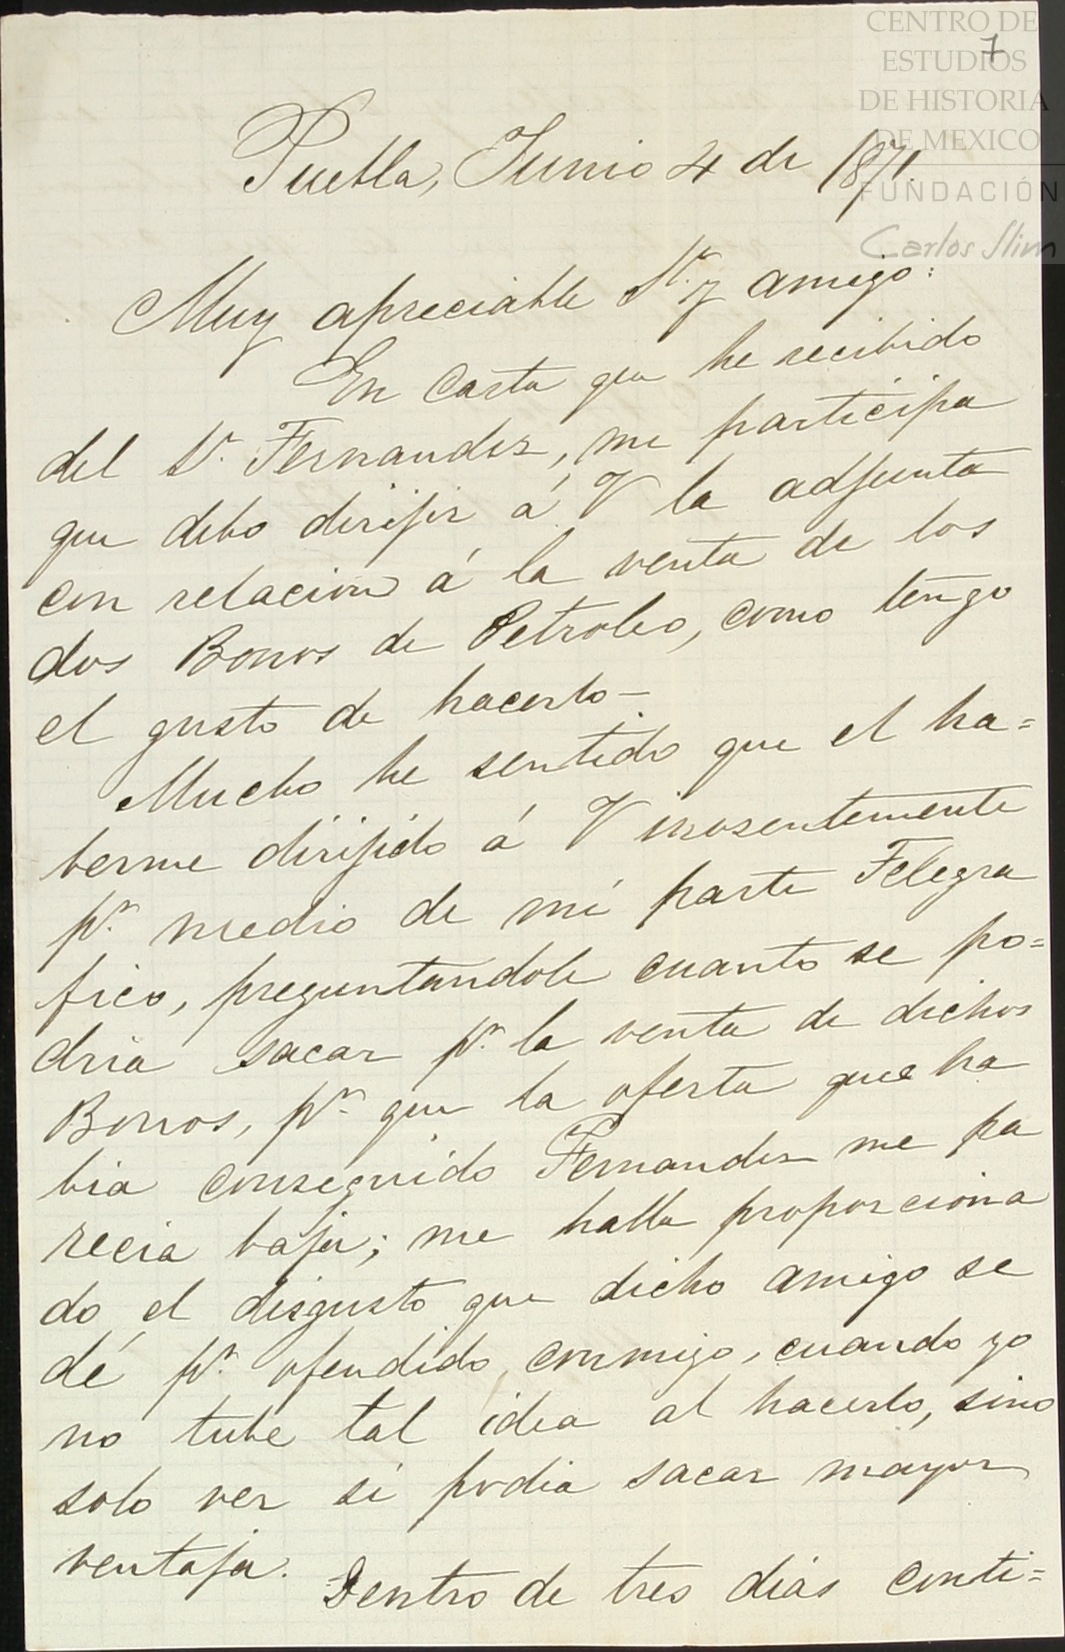 CENTRO DE
ESTUDIOS
DE HISTORIA
DE MEXICO
FUNDACIÓN
Carlos Slim
7
Puebla, Junio 4 de 1871.
Muy apreciable Sr. y amigo:
En carta que he recibido
del Sr. Fernandez, me participa
que debo dirijir á V la adjunta
con relacion á la venta de los
dos Bonos de Petroleo, como tengo
el gusto de hacerlo—
Mucho he sentido que el ha=
berme dirijido á V inosentemente
pr. medio de mi parte Telegra
fico, preguntandole cuanto se po=
dria sacar pr. la venta de dichos
Bonos, pr. que la oferta que ha
bia conseguido Fernandez me pa
recia baja; me halla proporciona
do el disgusto que dicho amigo se
dé pr. ofendido conmigo, cuando yo
no tube tal idea al hacerlo, sino
solo ver si podia sacar mayor
ventaja. Dentro de tres dias conti=